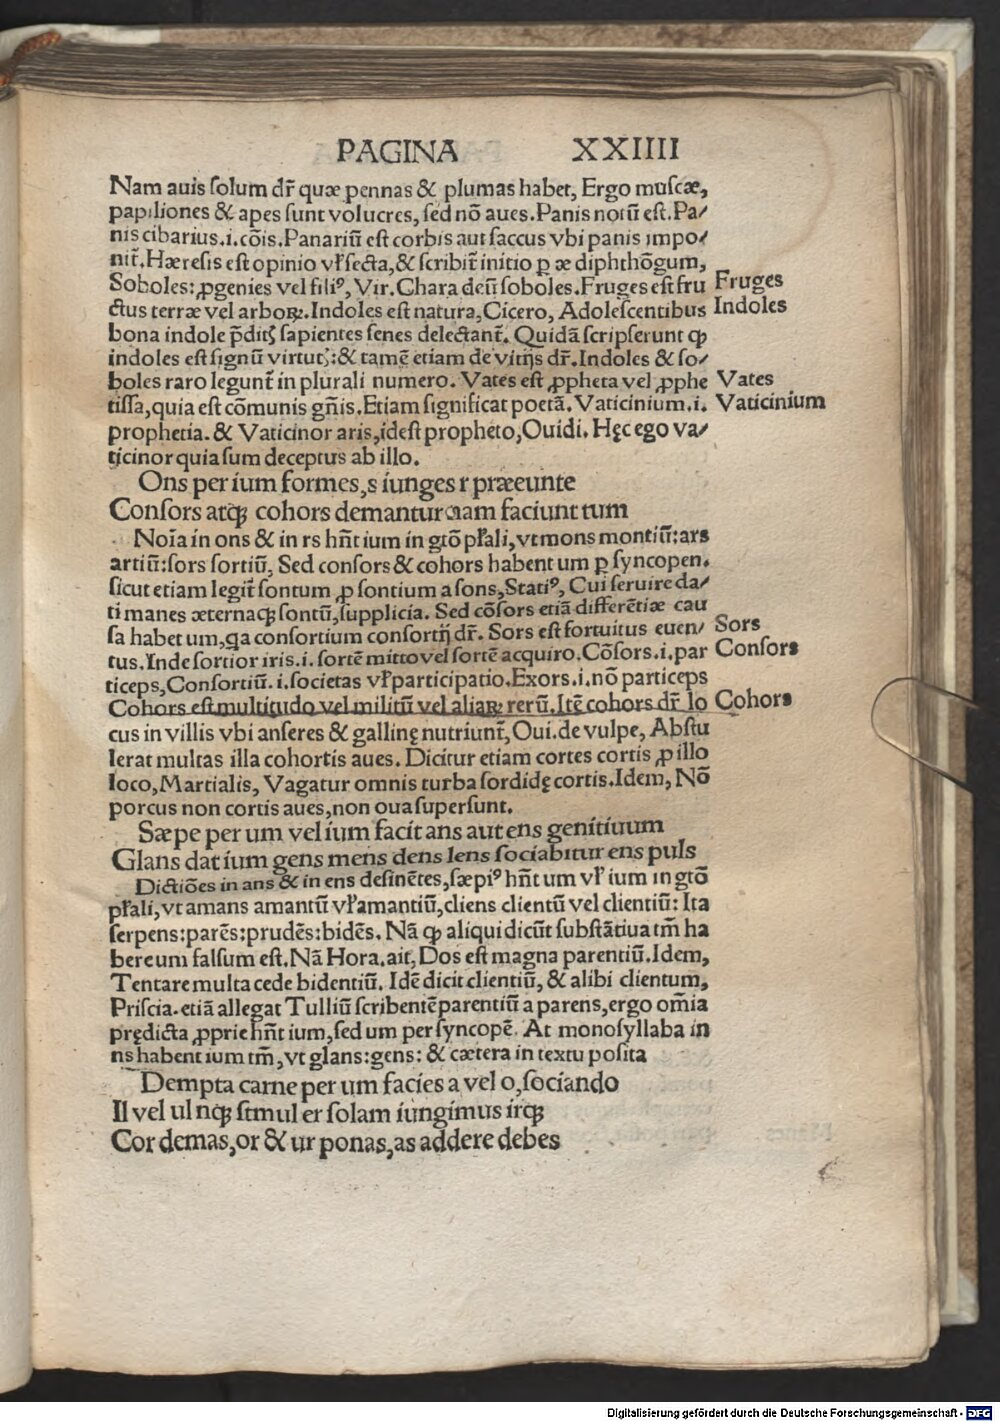 PAGINA XXIIII
Nam auis ſolum dr̃ quæ pennas & plumas habet, Ergo muſcæ,
papiliones & apes ſunt volucres, ſed nõ aues. Panis notũ eſt. Pa/
nis cibarius .i. cõis. Panariũ eſt corbis aut ſaccus vbi panis impo/
nit̃. Hæreſis eſt opinio vł ſecta, & ſcribit̃ initio p æ diphthõgum,
Soboles: ꝓgenies vel filiꝰ, Vir. Chara deũ ſoboles. Fruges eſt fru Fruges
ctus terræ vel arboꝝ. Indoles eſt natura, Cicero, Adoleſcentibus Indoles
bona indole p̃ditꝭ ſapientes ſenes delectant̃. Quidã ſcripſerunt ꝙ
indoles eſt ſignũ virtutꝭ: & tamẽ etiam de vitijs dr̃. Indoles & ſo/
boles raro legunt̃ in plurali numero. Vates eſt ꝓpheta vel ꝓphe Vates
tiſſa, quia eſt cõmunis gñis. Etiam ſignificat poetã. Vaticinium .i. Vaticinium
prophetia. & Vaticinor aris, ideſt propheto, Ouidi. Hęc ego va/
ticinor quia ſum deceptus ab illo.
Ons per ium formes, s iunges r præeunte
Conſors atqꝫ cohors demantur nam faciunt tum
Noĩa in ons & in rs hñt ium in gtõ płali, vt mons montiũ: ars
artiũ: ſors ſortiũ, Sed conſors & cohors habent um p ſyncopen.
ſicut etiam legit̃ ſontum ꝓ ſontium a ſons, Statiꝰ, Cui ſeruire da/
ti manes æternaqꝫ ſontũ, ſupplicia. Sed cõſors etiã differẽtiæ cau
ſa habet um, qa conſortium conſortij dr̃. Sors eſt fortuitus euen/ Sors
tus. Inde ſortior iris .i. ſortẽ mitto vel ſortẽ acquiro. Cõſors .i. par Conſors
ticeps, Conſortiũ .i. ſocietas vł participatio. Exors .i. nõ particeps
Cohors eſt multitudo vel militũ vel aliaꝝ rerũ. Itẽ cohors dr̃ lo Cohors
cus in villis vbi anſeres & gallinę nutriunt̃, Oui. de vulpe, Abſtu
lerat multas illa cohortis aues. Dicitur etiam cortes cortis ꝓ illo
loco, Martialis, Vagatur omnis turba ſordidę cortis. Idem, Nõ
porcus non cortis aues, non oua ſuperſunt.
Sæpe per um vel ium facit ans aut ens genitiuum
Glans dat ium gens mens dens lens ſociabitur ens puls
Dictiões in ans & in ens deſinẽtes, ſæpiꝰ hñt um vł ium in gtõ
płali, vt amans amantũ vł amantiũ, cliens clientũ vel clientiũ: Ita
ſerpens: parẽs: prudẽs: bidẽs. Nã ꝙ aliqui dicũt ſubſtãtiua tm̃ ha
bere um falſum eſt. Nã Hora. ait, Dos eſt magna parentiũ. Idem,
Tentare multa cede bidentiũ. Idẽ dicit clientiũ, & alibi clientum,
Priſcia. etiã allegat Tulliũ ſcribentẽ parentiũ a parens, ergo om̃ia
prędicta ꝓprie hñt ium, ſed um per ſyncopẽ. At monoſyllaba in
ns habent ium tm̃, vt glans: gens: & cætera in textu poſita
Dempta carne per um facies a vel o, ſociando
Il vel ul nqꝫ ſimul er ſolam iungimus irqꝫ
Cor demas, or & ur ponas, as addere debes
Digitalisierung gefördert durch die Deutsche Forschungsgemeinschaft - DFG